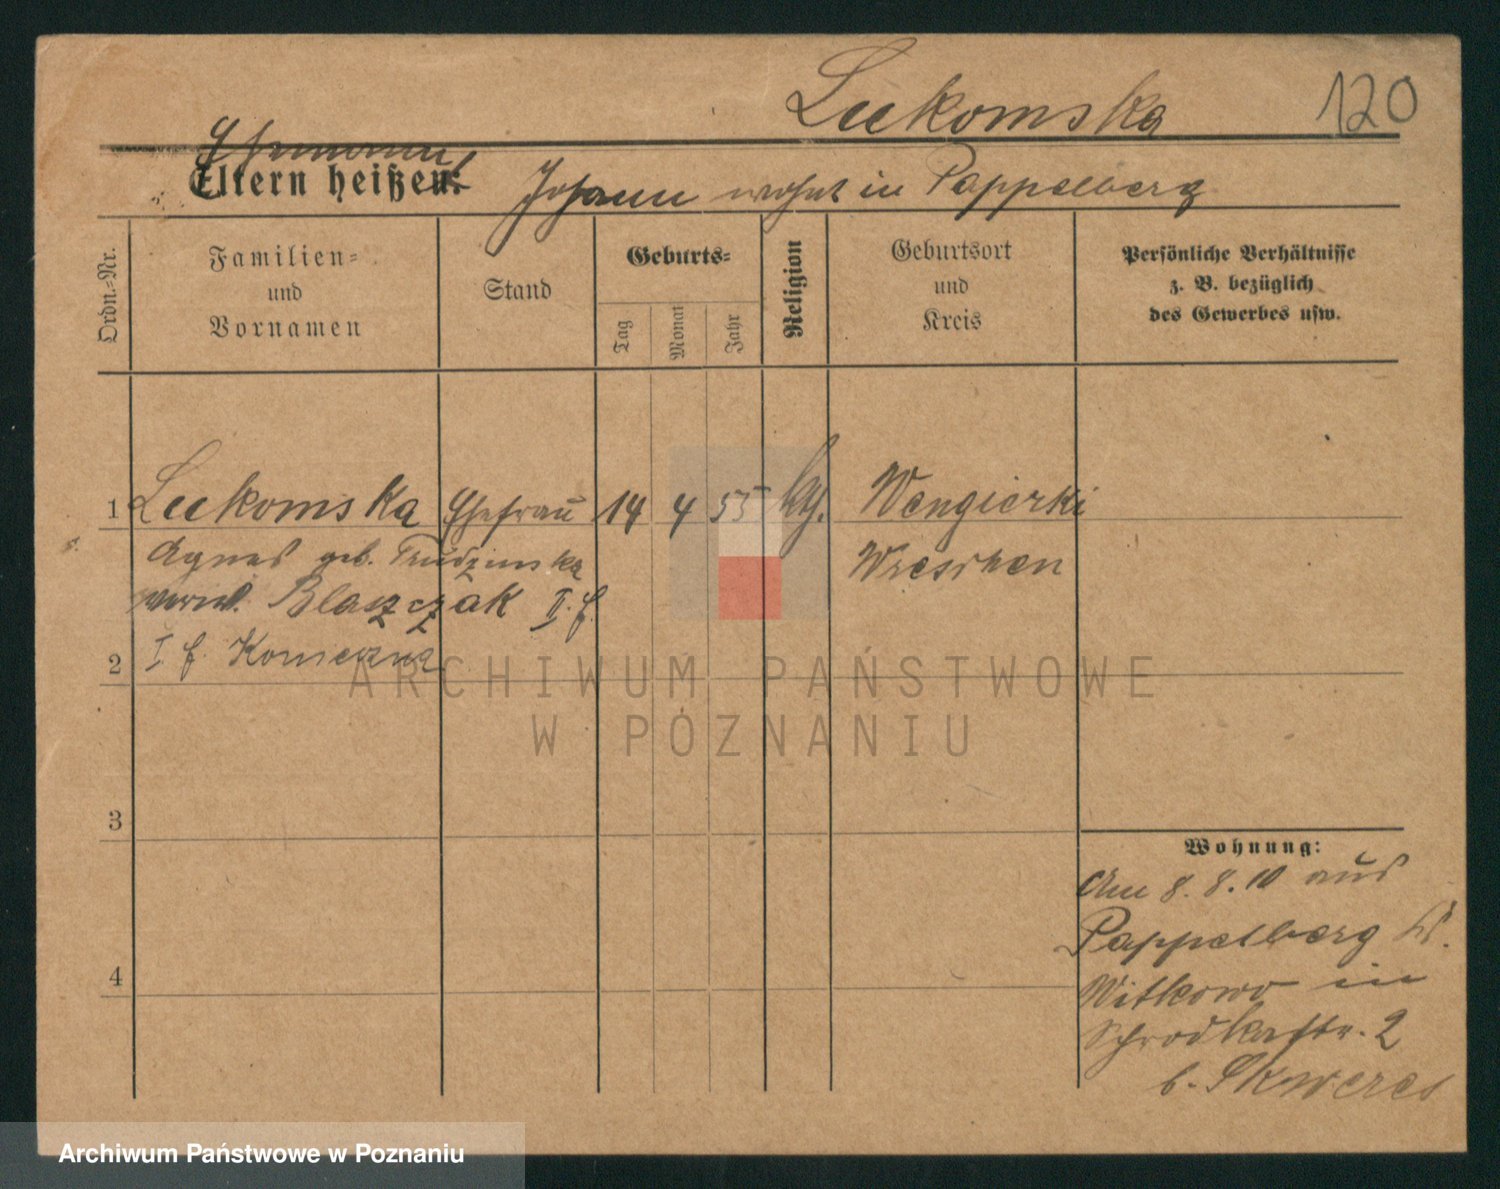 Lukomska 120
Ehemann
Eltern heißen: Johann wohnt in Pappelberg
Ordn.-Nr.
Familien-
und
Vornamen
Stand
Geburts-
Tag
Monat
Jahr
Religion
Geburtsort
und
Kreis
Persönliche Verhältnisse
z. B. bezüglich
des Gewerbes usw.
1 Lukomska Ehefrau 14 4 55 kth. Wengierki
Agnes geb. Trudzinska Wreschen
verw. Blaszczak II. f.
2 I. f. Konieczna
ARCHIWUM PAŃSTWOWE
W POZNANIU
3
Wohnung:
Am 8. 8. 10 aus
Pappelberg
4
Witkowo in
Schrodkastr. 2
b. Skweres
Archiwum Państwowe w Poznaniu